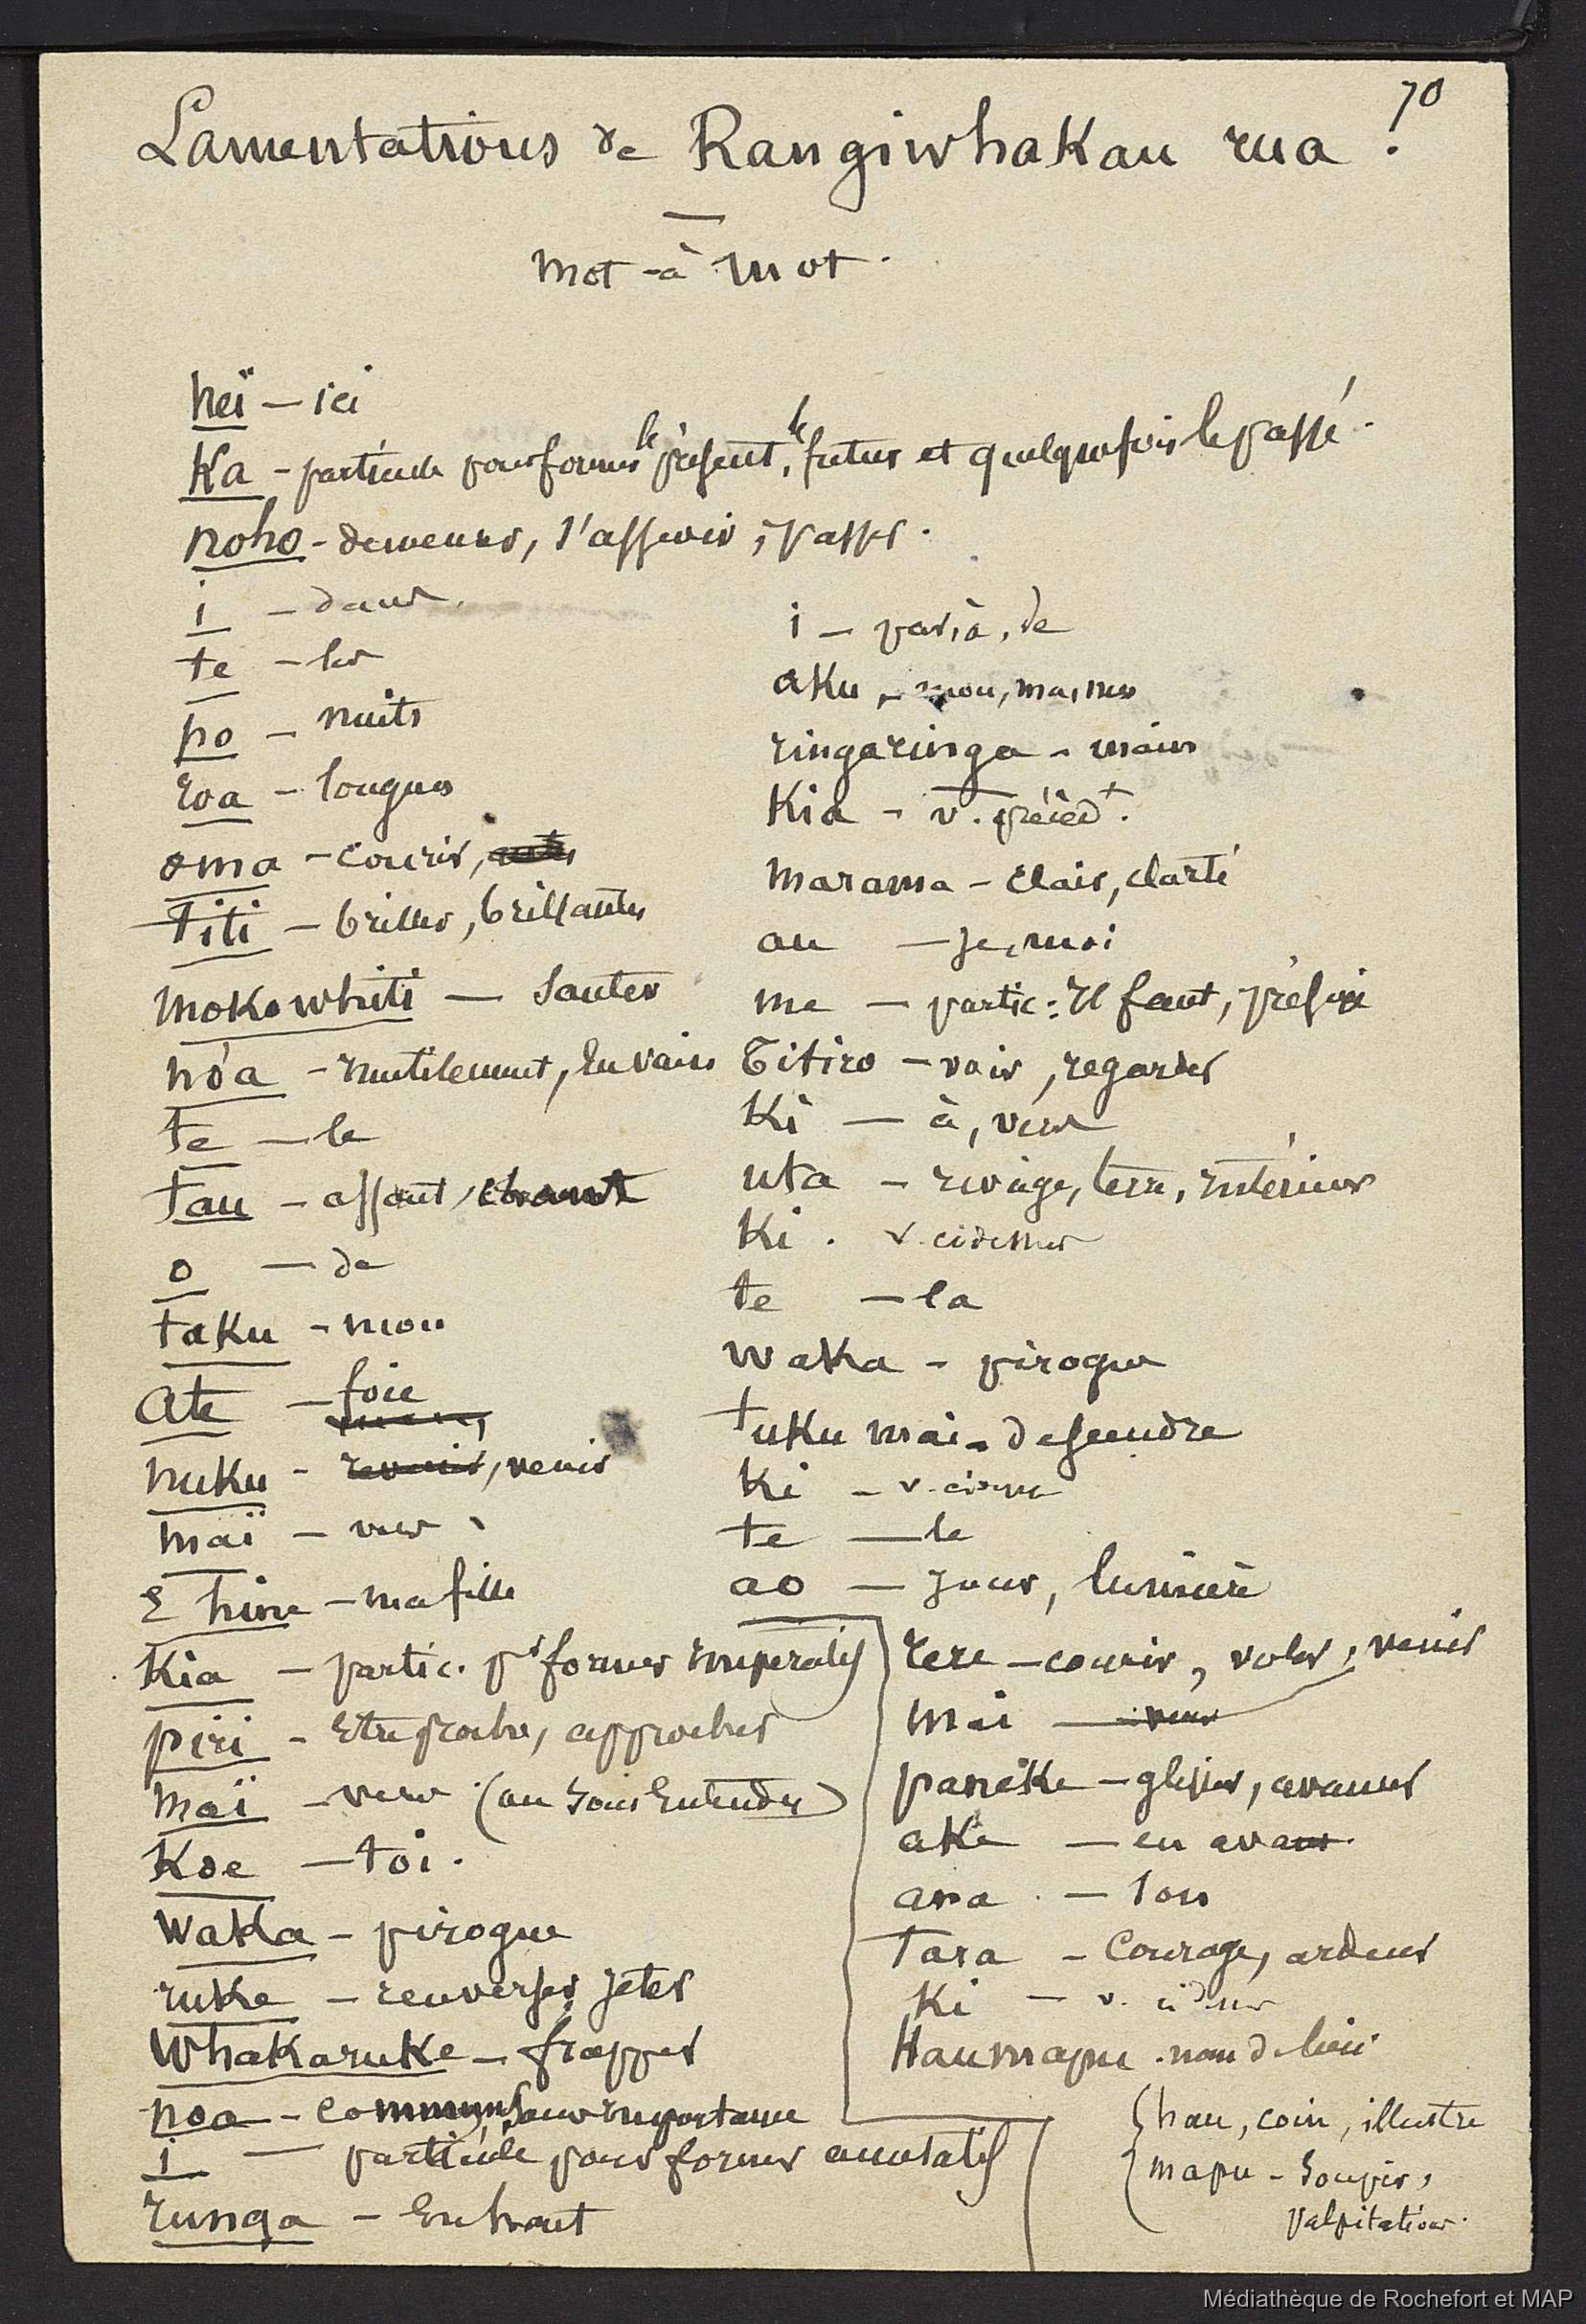 70
Lamentations de Rangiwhakau rua.
mot-à mot.
heï — ici
Ka - particule pour former le présent, le futur et quelquefois le passé.
noho - demeurer, s'asseoir, passer.
i - dans.
te - les
po - nuits
roa - longues
oma - courir,
titi - briller, brillantes
mokowhiti — Sauter
nóa - inutilement, en vain
te — le
tau - assaut, chant
o — de
taku - mon
ate — foie
nuku - revenir, venir
maï — vers
E hine - ma fille
Kia — partic. pr former impératif
piri - être proche, approcher
maï - vers (ou sous entendu)
Koe — toi.
Waka - pirogue
ruke - renverser, jeter
Whakaruke - frapper
noa - commun, sans importance
i — particule pour former accusatif
runga - En haut
i - par, à, de
aku - mon, ma, mes
ringaringa - mains
Kia - v. précédt.
marama - clair, clarté
au — je, moi
me — partic: Il faut, préfixe
Titiro - voir, regarder
Ki — à, vers
uta - rivage, terre, intérieur
Ki . v. cidessus
te — la
waka - pirogue
tuku mai - descendre
ki - v. cidessus
te — le
ao — jour, lumière
rere - courir, voler, venir
mai — vers
paneke - glisser, avancer
ake — en avant.
ana . — son
Tara - Courage, ardeur
Ki - v. cidessus
Haumapu . nom de lieu.
hau, coin, illustre
mapu - Soupir,
palpitation.
Médiathèque de Rochefort et MAP